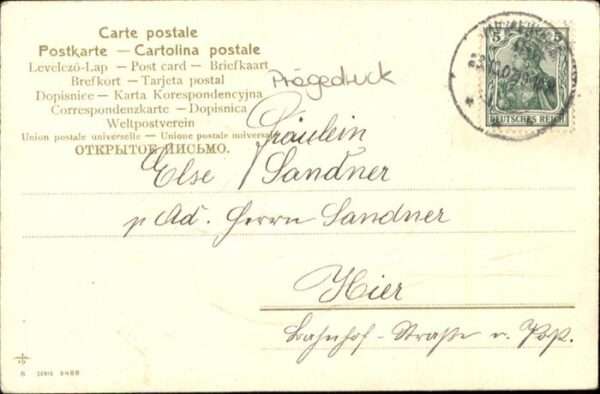 Carte postale
Postkarte — Cartolina postale
Levelező-Lap — Post card — Briefkaart
Brefkort — Tarjeta postal
Dopisnice — Karta Korespondencyjna
Correspondenzkarte — Dopisnica
Weltpostverein
Union postale universelle — Unione postale universale
ОТКРЫТОЕ ПИСЬМО.
Prägedruck
5 5
DEUTSCHES REICH
Fräulein
Else Sandner
p Ad. Herrn Sandner
Hier
Bahnhof-Straße